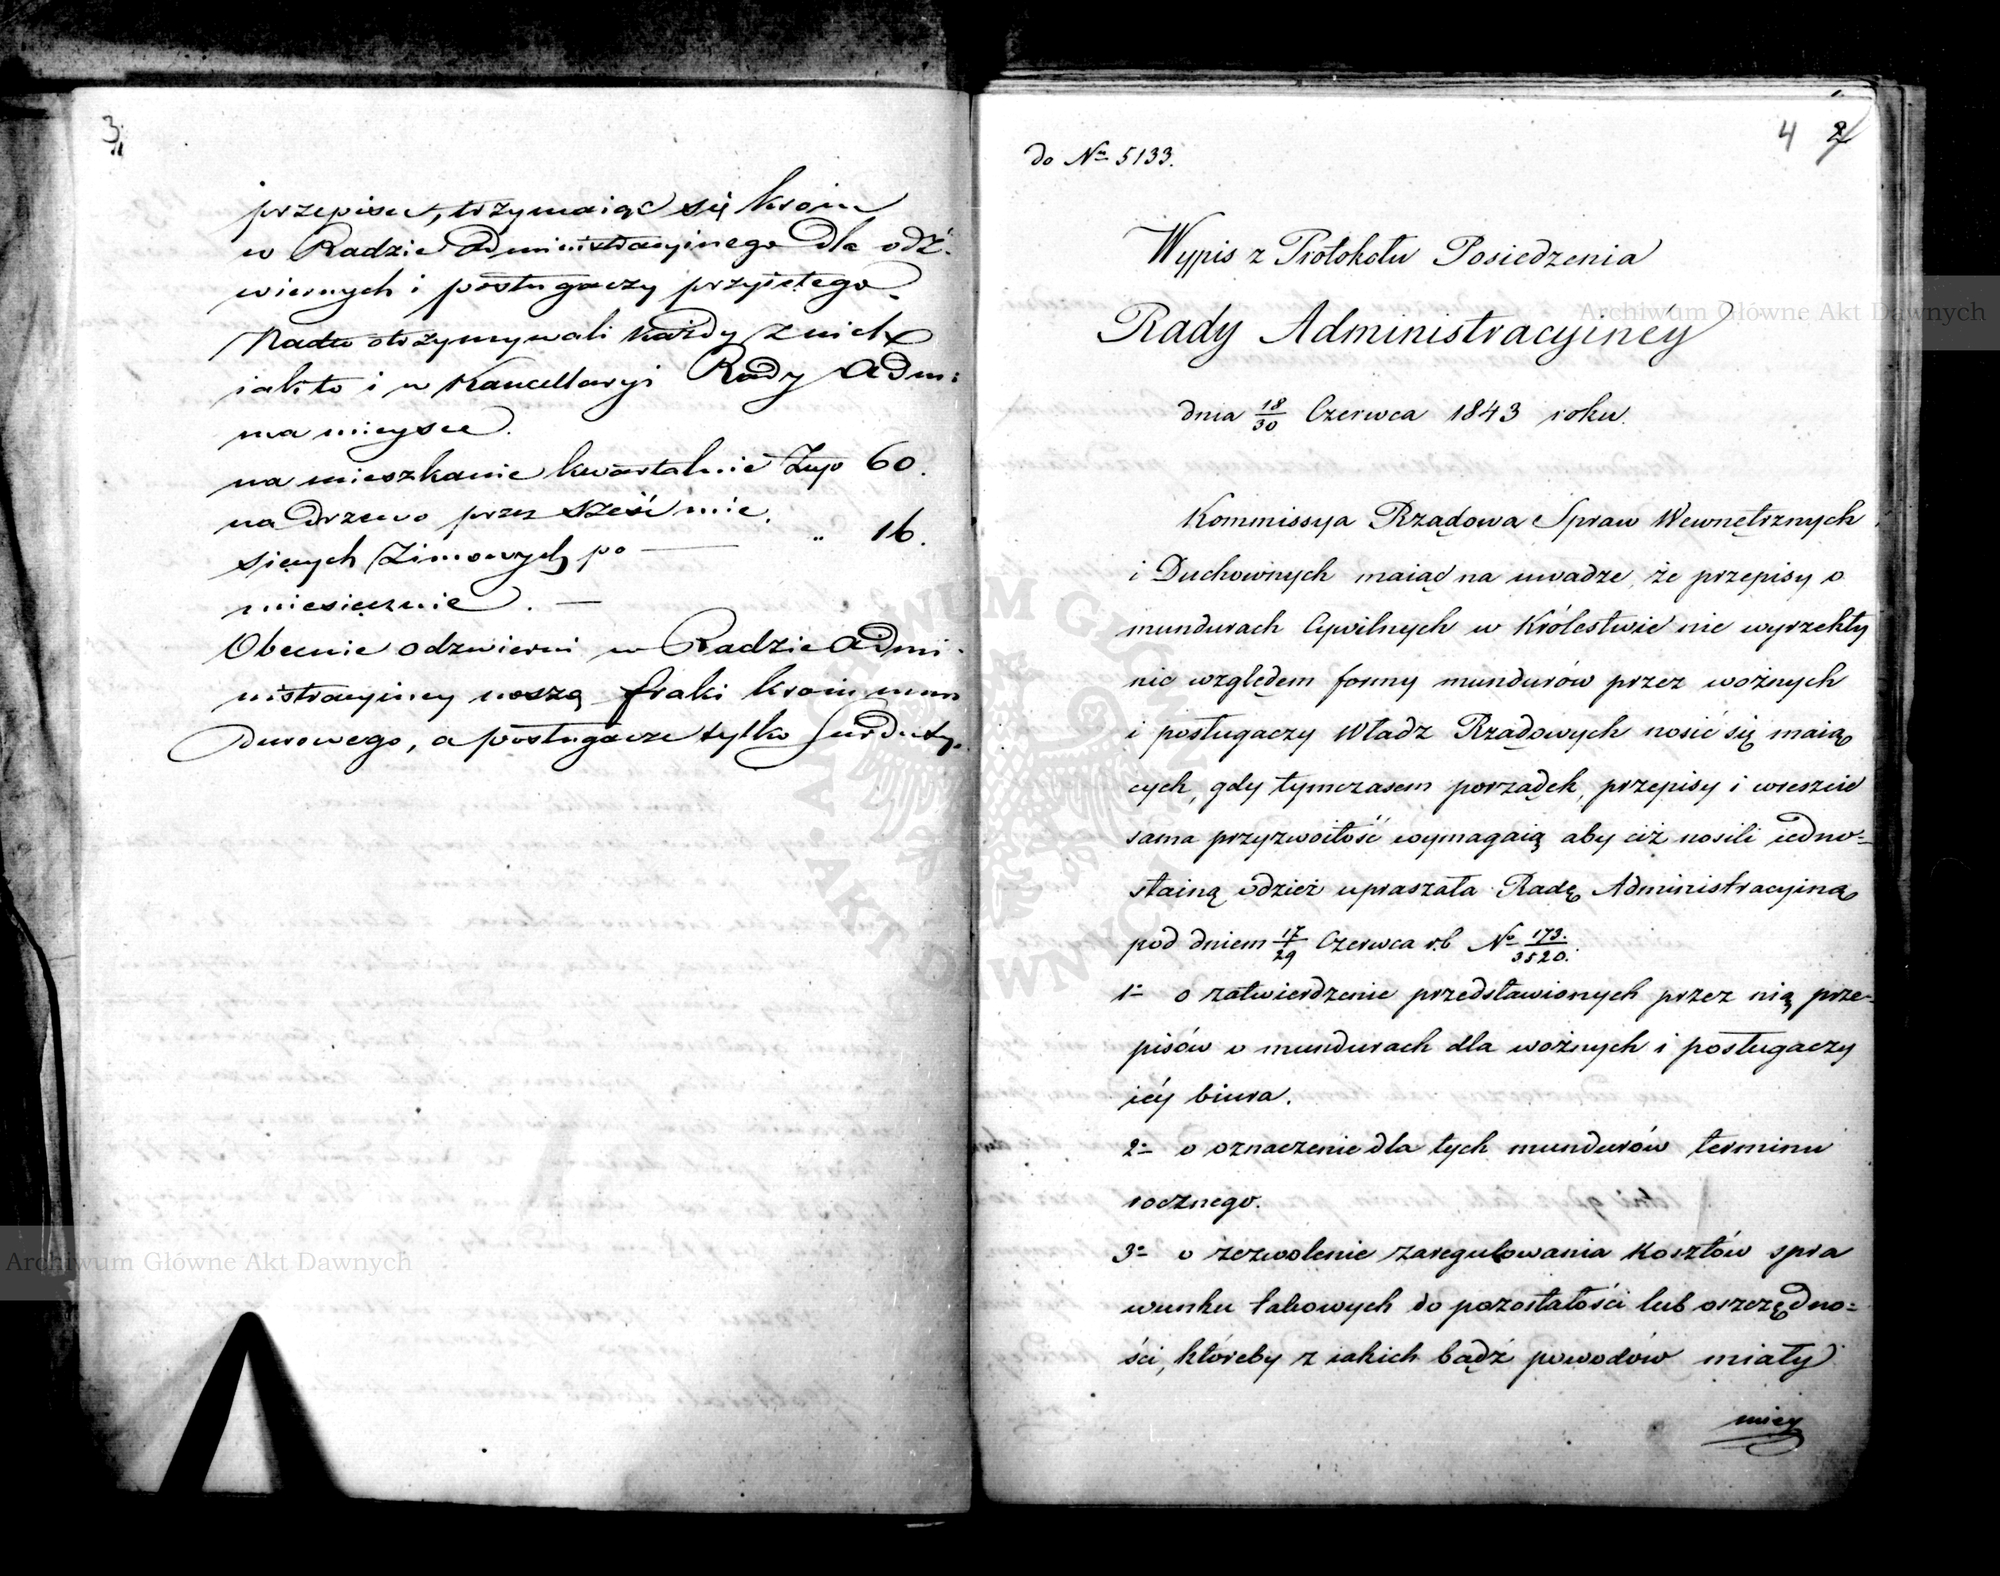 3
przepisu, trzymaiąc się kroiu
w Radzie Administracyinego dla odź-
wiernych i posługaczy przyiętego.
Nadto otrzymywali każdy z nich
iak to i w Kancellaryi Rady Adm:
ma mieysce.
na mieszkanie kwartalnie Złp 60.
na drzewo przez sześć mie-
sięcych zimowych po — " 16.
miesięcznie. —
Obecnie odzwierni w Radzie Admi-
nistracyiney noszą fraki kroiu mun
durowego, a posługacze tylko surduty.
4 2
do Nru 5133.
Wypis z Protokołu Posiedzenia
Rady Administracyinéy
dnia 18/30 Czerwca 1843 roku.
Kommissya Rządowa Spraw Wewnętrznych
i Duchownych maiąc na uwadze, że przepisy o
mundurach Cywilnych w Królestwie nie wyrzekły
nic względem formy mundurów przez woźnych
i posługaczy Władz Rządowych nosić się maią
cych, gdy tymczasem porządek, przepisy i wreszcie
sama przyzwoitość wymagaią aby ciż nosili iedno=
stainą odzież upraszała Radę Administracyiną
pod dniem 17/29 Czerwca r.b No 173./3520.
1o o zatwierdzenie przedstawionych przez nią prze=
pisów o mundurach dla woźnych i posługaczy
iéy biura.
2o o oznaczenie dla tych mundurów terminu
rocznego.
3o o zezwolenie zaregulowania kosztów spra
wunku takowych do pozostałości lub oszczędno=
ści, któreby z iakich bądź powodów miały
miey
Archiwum Główne Akt Dawnych
Archiwum Główne Akt Dawnych
ARCHIWUM GŁÓWNE AKT DAWNYCH